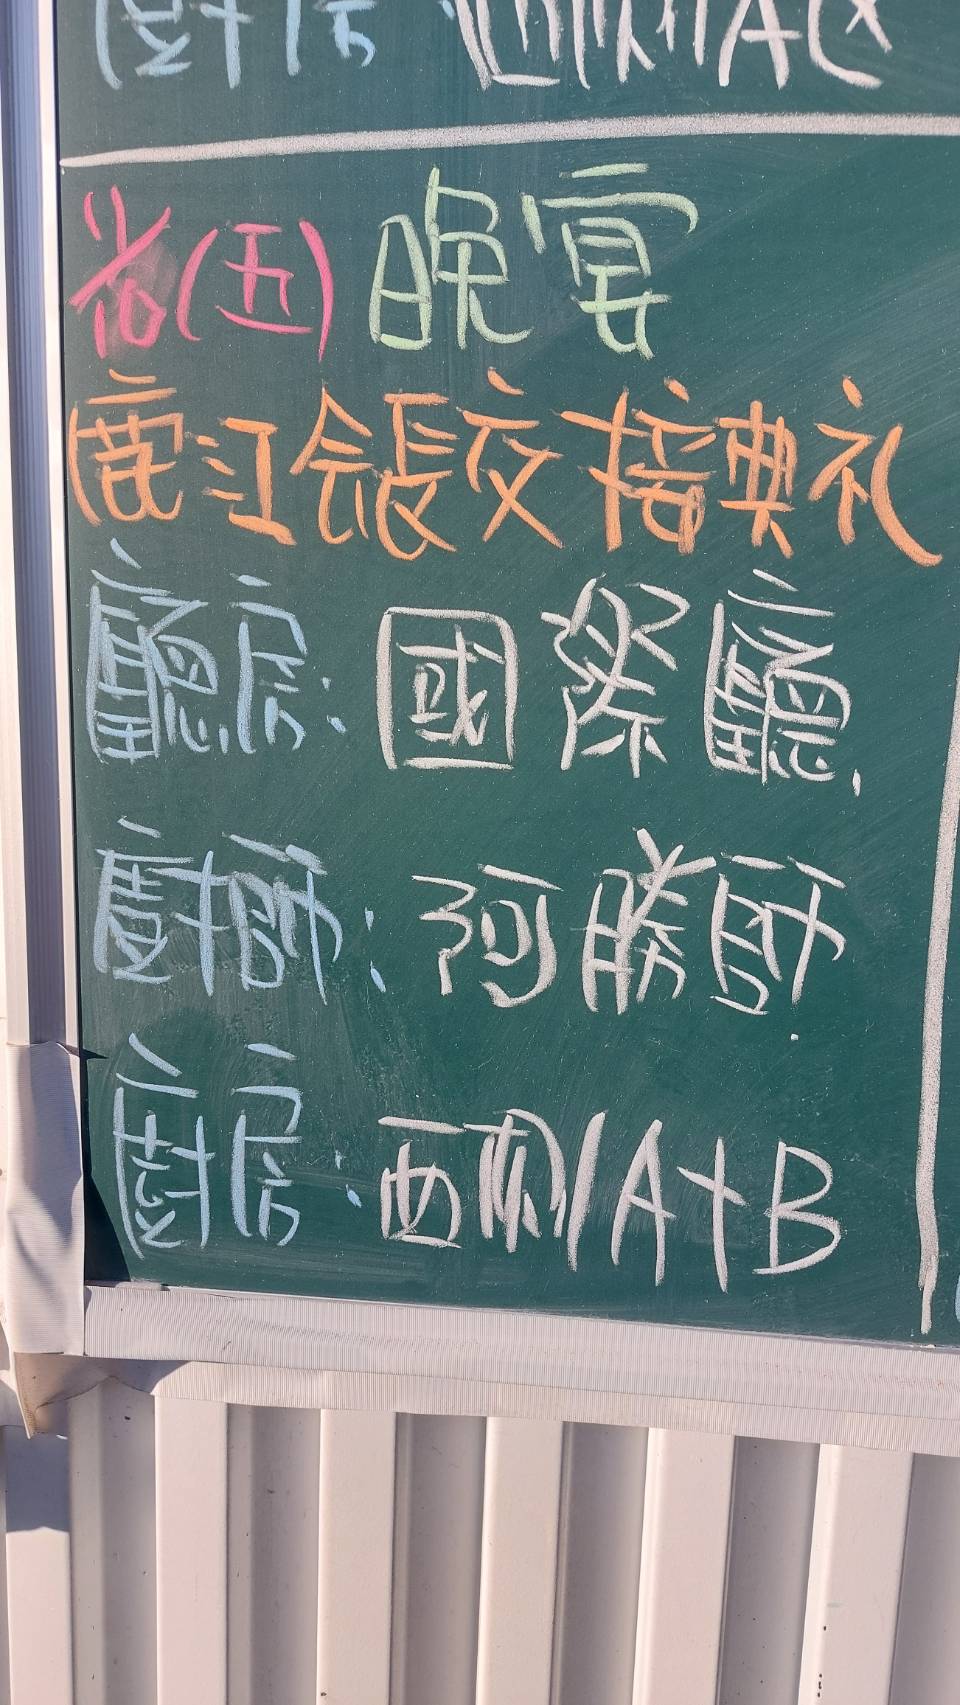 廚房: 西側A
(五) 晚宴
鹿江會長交接典礼
廳房: 國際廳.
廚師: 阿勝師.
廚房: 西側A+B